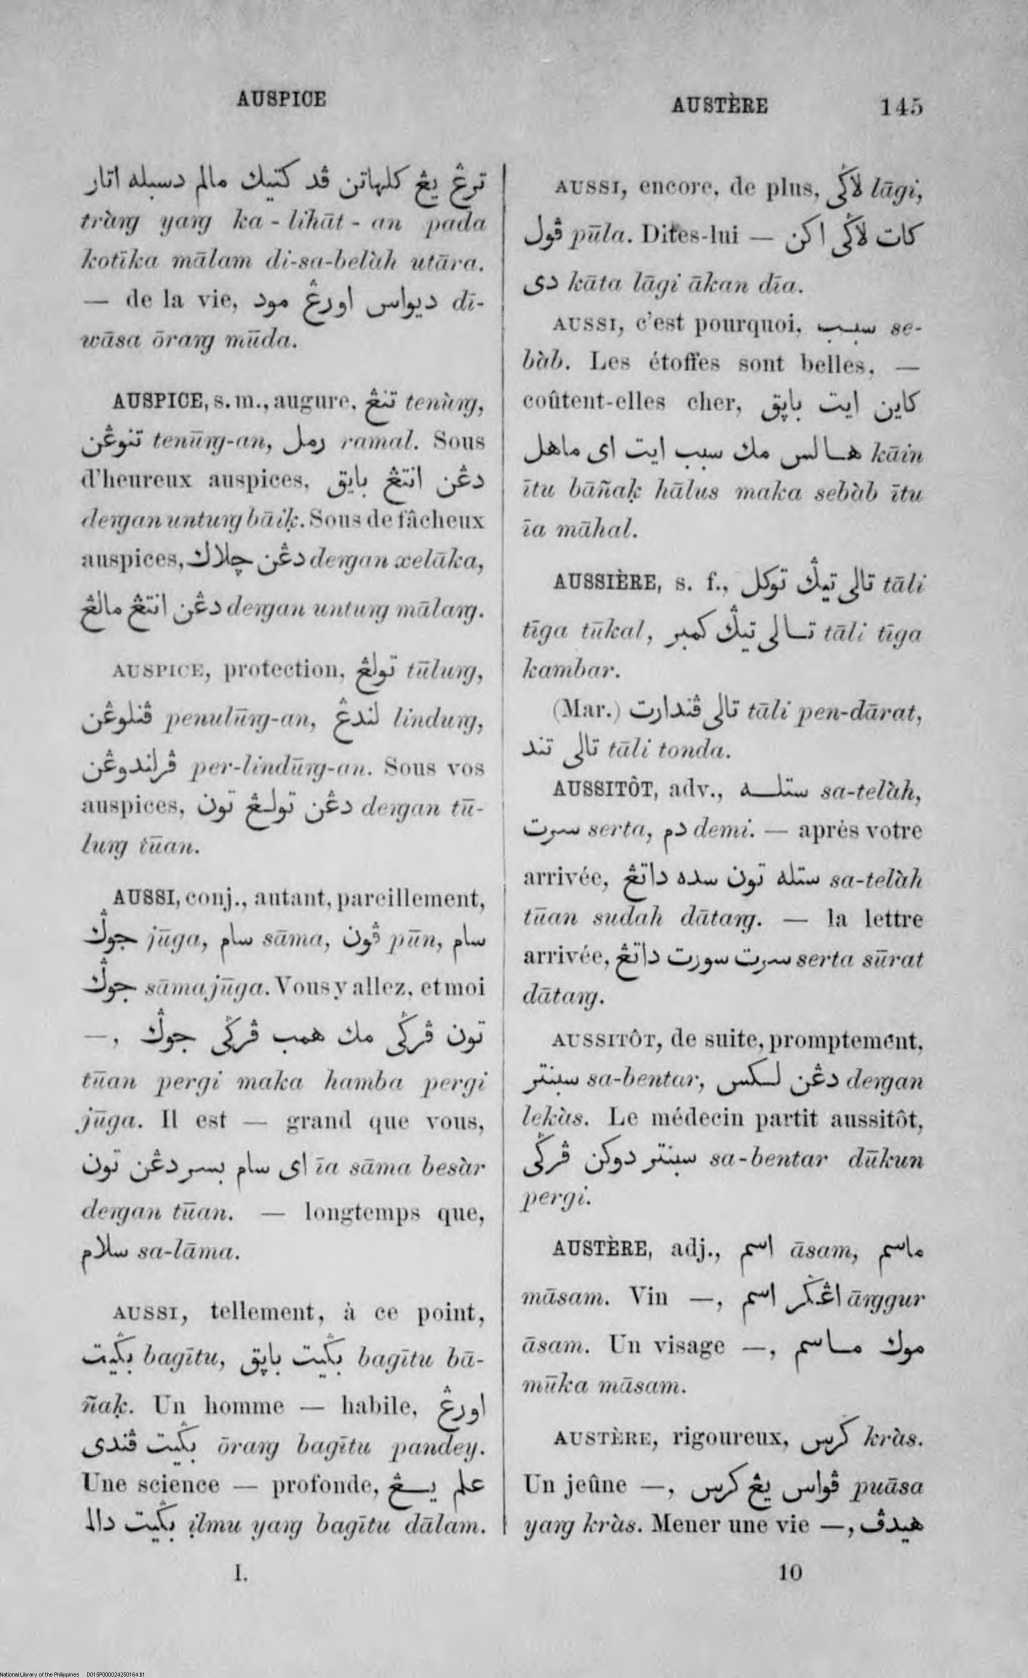 AUSPICE
AUSTÈRE 145
ترڠ يڠ كلهاتن ڤد كتيك مالم دسبله اتار
tràrg yarg ka-lihāt-an pada
kotīka mālam di-sa-belàh utāra.
— de la vie, ديواس اورڠ مود dī-
wāsa ōrarg mūda.
AUSPICE, s. m., augure, تنڠ tenùrg,
تنوڠن tenūrg-an, رمل ramal. Sous
d'heureux auspices, دڠن انتڠ بايق
dergan unturg bāiḳ. Sous de fâcheux
auspices, دڠن چلاك dergan xelāka,
دڠن انتڠ مالڠ dergan unturg mālarg.
AUSPICE, protection, تولڠ tūlurg,
ڤنلوڠن penulūrg-an, لندڠ lindurg,
ڤرلندوڠن per-lindūrg-an. Sous vos
auspices, دڠن تولڠ تون dergan tū-
lurg tūan.
AUSSI, conj., autant, pareillement,
جوݢ jūga, سام sāma, ڤون pūn, سام
جوݢ sāma jūga. Vous y allez, et moi
—, تون ڤرݢى مك همب ڤرݢى جوݢ
tūan pergi maka hamba pergi
jūga. Il est — grand que vous,
اى سام بسر دڠن تون īa sāma besàr
dergan tūan. — longtemps que,
سلام sa-lāma.
AUSSI, tellement, à ce point,
بݢيت bagītu, بݢيت باڽق bagītu bā-
ñaḳ. Un homme — habile, اورڠ
بݢيت ڤندى ōrarg bagītu pandey.
Une science — profonde, علم يڠ
بݢيت دالم ilmu yarg bagītu dālam.
I.
AUSSI, encore, de plus, لاݢى lāgi,
ڤول pūla. Dites-lui — كات لاݢى اكن
دى kāta lāgi ākan dīa.
AUSSI, c'est pourquoi, سبب se-
bàb. Les étoffes sont belles, —
coûtent-elles cher, كاين ايت باڽق
هالس مك سبب ايت اى ماهل kāin
ītu bāñaḳ hālus maka sebàb ītu
īa māhal.
AUSSIÈRE, s. f., تالى تيݢ توكل tāli
tīga tūkal, تالى تيݢ كمبر tāli tīga
kambar.
(Mar.) تالى ڤندارت tāli pen-dārat,
تالى تند tāli tonda.
AUSSITÔT, adv., ستله sa-telàh,
سرت serta, دم demi. — après votre
arrivée, ستله تون سده داتڠ sa-telàh
tūan sudah dātarg. — la lettre
arrivée, سرت سورت داتڠ serta sūrat
dātarg.
AUSSITÔT, de suite, promptement,
سبنتر sa-bentar, دڠن لكس dergan
lekàs. Le médecin partit aussitôt,
سبنتر دوكن ڤرݢى sa-bentar dūkun
pergi.
AUSTÈRE, adj., اسم āsam, ماسم
māsam. Vin —, اڠݢر اسم ārggur
āsam. Un visage —, موك ماسم
mūka māsam.
AUSTÈRE, rigoureux, كرس kràs.
Un jeûne —, ڤواس يڠ كرس puāsa
yarg kràs. Mener une vie —, هيدڤ
10
National Library of the Philippines